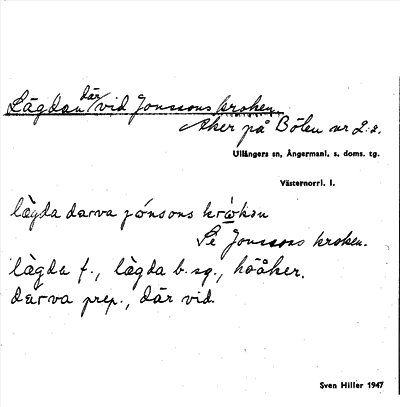 Lägdan där/vid Jonssons kroken
Åker på Bölen nr 2:2.
Ullångers sn, Ångermanl. s. doms. tg.
Västernorrl. l.
làgda darva jónsons
Se Jonssons kroken.
làgda f., làgda b. sg., höåker.
darva prep., där vid.
Sven Hiller 1947